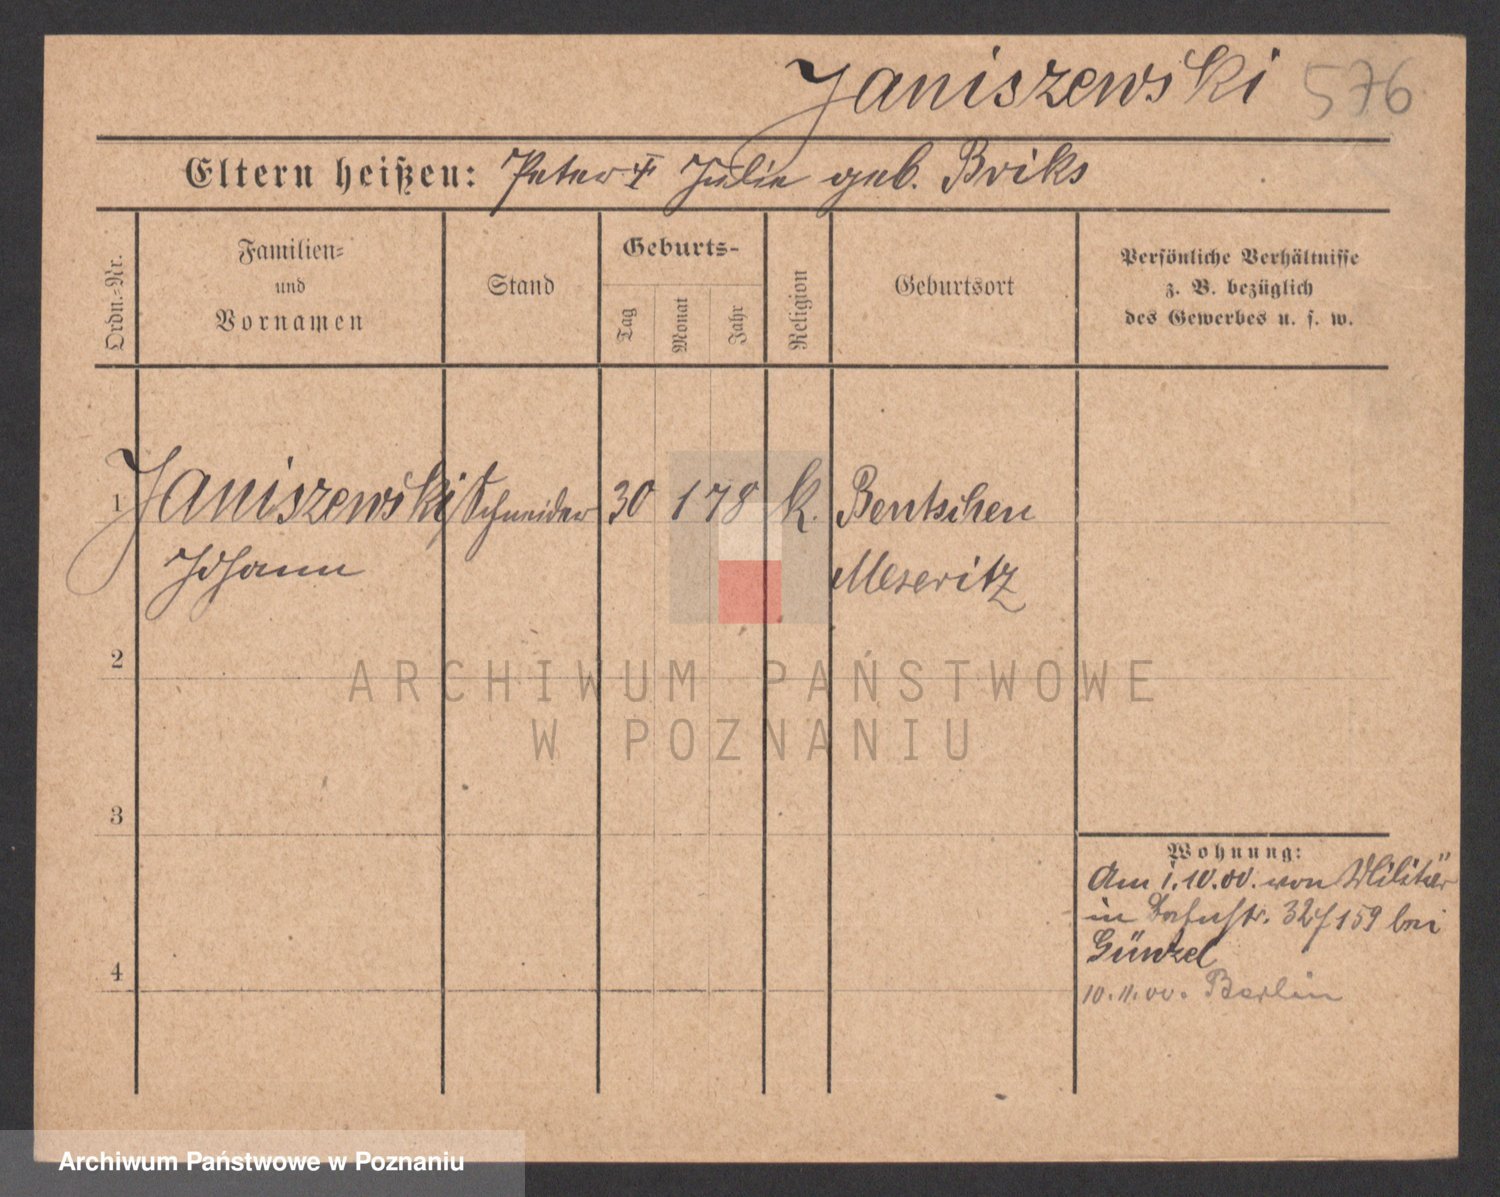 Janiszewski 576
Eltern heißen: Peter † Julie geb. Briks
Ordn.-Nr.
Familien-
und
Vornamen
Stand
Geburts-
Tag
Monat
Jahr
Religion
Geburtsort
Persönliche Verhältnisse
z. B. bezüglich
des Gewerbes u. s. w.
1 Janiszewski Schneider 30 1 78 k. Bentschen
Johann Meseritz
2
3
4
Wohnung:
Am 1.10.00. von Militär
in 159 bei
Günzel
10.11.00. Berlin
ARCHIWUM PAŃSTWOWE
W POZNANIU
Archiwum Państwowe w Poznaniu